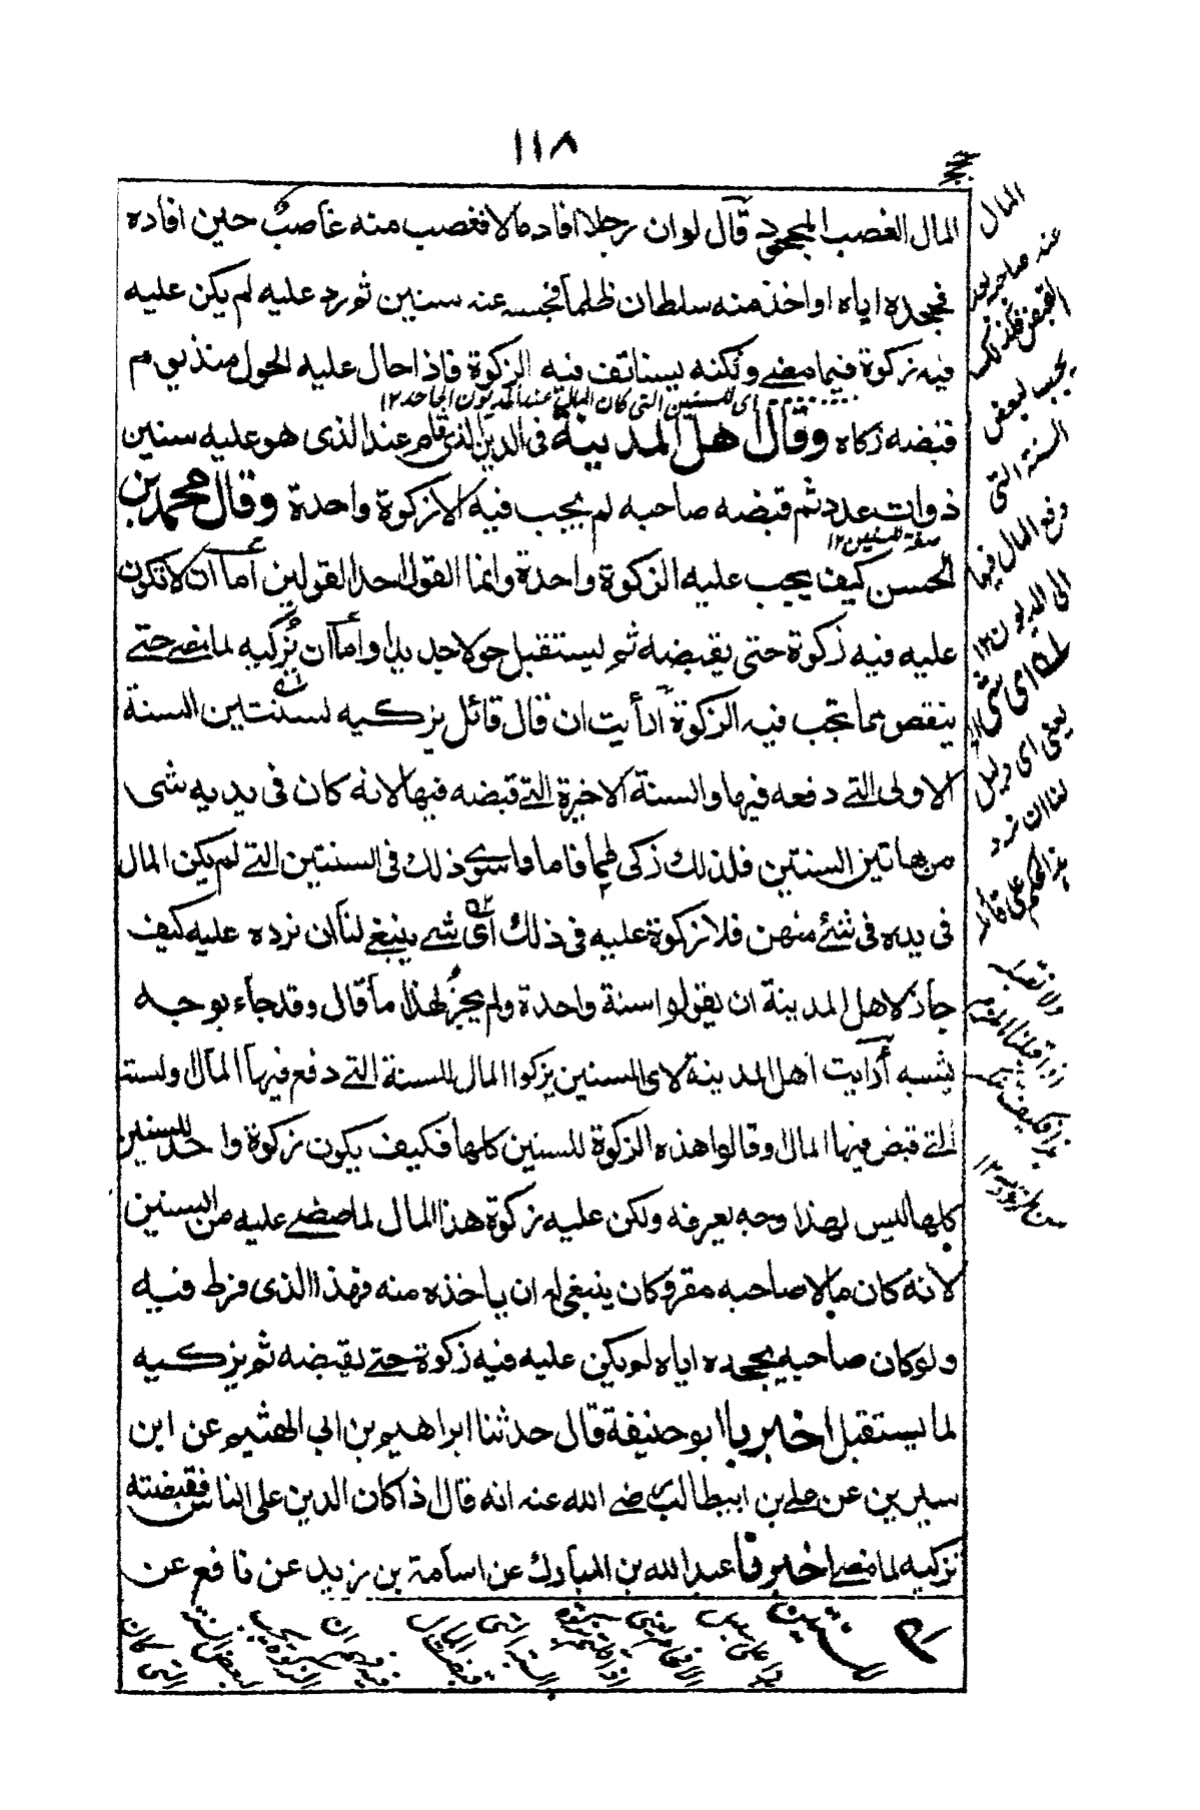 ١١٨
المال الغصب المجحود قال لو ان رجلا افاد مالا فغصب منه غاصب حين افاده
فجحده اياه او اخذ منه سلطان ظلما فحبسه عنه سنين ثم رد عليه لم يكن عليه
فيه زكوة فيما مضى ولكنه يستانف فيه الزكوة فاذا حال عليه الحول منذ يوم
اى للسنين التى كان المال عند المديون الجاحد ١٢
قبضه زكاه وقال اهل المدينة فى الدين الذى قام عند الذى هو عليه سنين
ذوات عدد ثم قبضه صاحبه لم يجب فيه الا زكوة واحدة وقال محمد بن
صفة للسنين ١٢
الحسن كيف يجب عليه الزكوة واحدة وانما القول احد القولين أما ان لا تكون
عليه فيه زكوة حتى يقبضه ثم ليستقبل حولا جديدا وأما ان يزكيه لما مضى حتى
ينقص مما تجب فيه الزكوة أرأيت ان قال قائل يزكيه لسنتين السنة
الاولى التى دفعه فيها والسنة الاخيرة التى قبضه فيها لانه كان فى يديه شى
من هاتين السنتين فلذلك زكى لهما فاما ما سوى ذلك فى السنتين التى لم يكن المال
فى يده فى شئ منهن فلا زكوة عليه فى ذلك اى شى ينبغى لنا ان نرده عليه كيف
جاز لاهل المدينة ان يقولوا سنة واحدة ولم يجز لهذا ما قال وقد جاء بوجه
يشبه أرأيت اهل المدينة لاى السنين يزكوا المال للسنة التى دفع فيها المال او لسنة
التى قبض فيها المال وقالوا هذه الزكوة للسنين كلها فكيف يكون زكوة واحد للسنين
كلها ليس لهذا وجه يعرفه ولكن عليه زكوة هذا المال لما مضى عليه من السنين
لانه كان مالا صاحبه مقر وكان ينبغى له ان ياخذه منه فهذا الذى فرط فيه
ولو كان صاحبه يجحده اياه لم يكن عليه فيه زكوة حتى يقبضه ثم يزكيه
لما يستقبل اخبرنا ابو حنيفة قال حدثنا ابراهيم بن ابى الهثيم عن ابن
سيرين عن على بن ابيطالب رضى الله عنه انه قال اذا كان الدين على الناس فقبضته
تزكيه لما مضى اخبرنا عبد الله بن المبارك عن اسامة بن زيد عن نافع عن
المال
عند صاحبه
يجب لبعض
السنة التى
دفع المال فيها
الى المديون ١٢
اى شى
يعنى اى دليل
لنا ان نرد